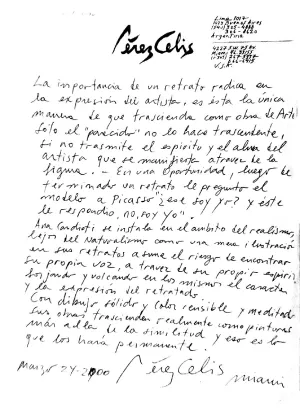 Pérez Celis
Lima 1017
Argentina
U.S.A.
La importancia de un retrato radica en
la expresión del artista, es ésta la única
manera de que trascienda como obra de Arte
Solo el "parecido" no lo hace trascendente,
si no trasmite el espíritu y el alma del
artista que se manifiesta atravez de la
figura. - En una oportunidad, luego de
terminado un retrato le preguntó el
modelo a Picasso ¿ese soy yo? y éste
le respondio, no, soy yo".
Ana Candioti se instala en el ambito del realismo,
lejos del Naturalismo como una mera ilustración
en sus retratos asume el riesgo de encontrar
su propia voz, a traves de su propio espiritu
y volcando en los mismos el caracter
y la expresión del retratado.
Con dibujo sólido y color sensible y meditado
sus obras trascienden realmente como pinturas
más alla de la similitud, y eso es lo
que los haría permanente.
Marzo 24-2000
Pérez Celis
Miami